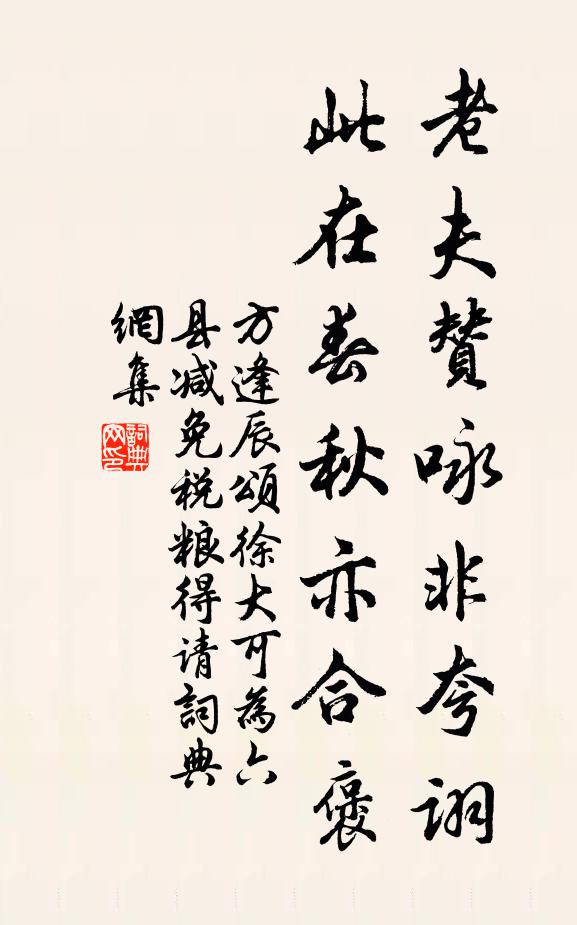 老夫赞咏非夸诩
此在春秋亦合褒
方逢辰颂徐大可为六
县减免税粮得请词典
網集
詞典網印